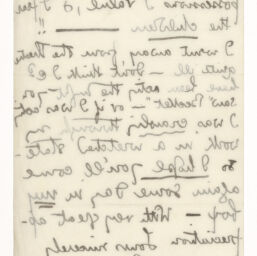 possessions I value, & I
the children — !!
I went away from the Theatre
quite ill — Don't think I cd
have been acting the
" — or if I was not
I was crawling through my
work in a wretched state
So I hope you'll come
again some day in my
boy — With very great ap-
preciation Yours sincerely